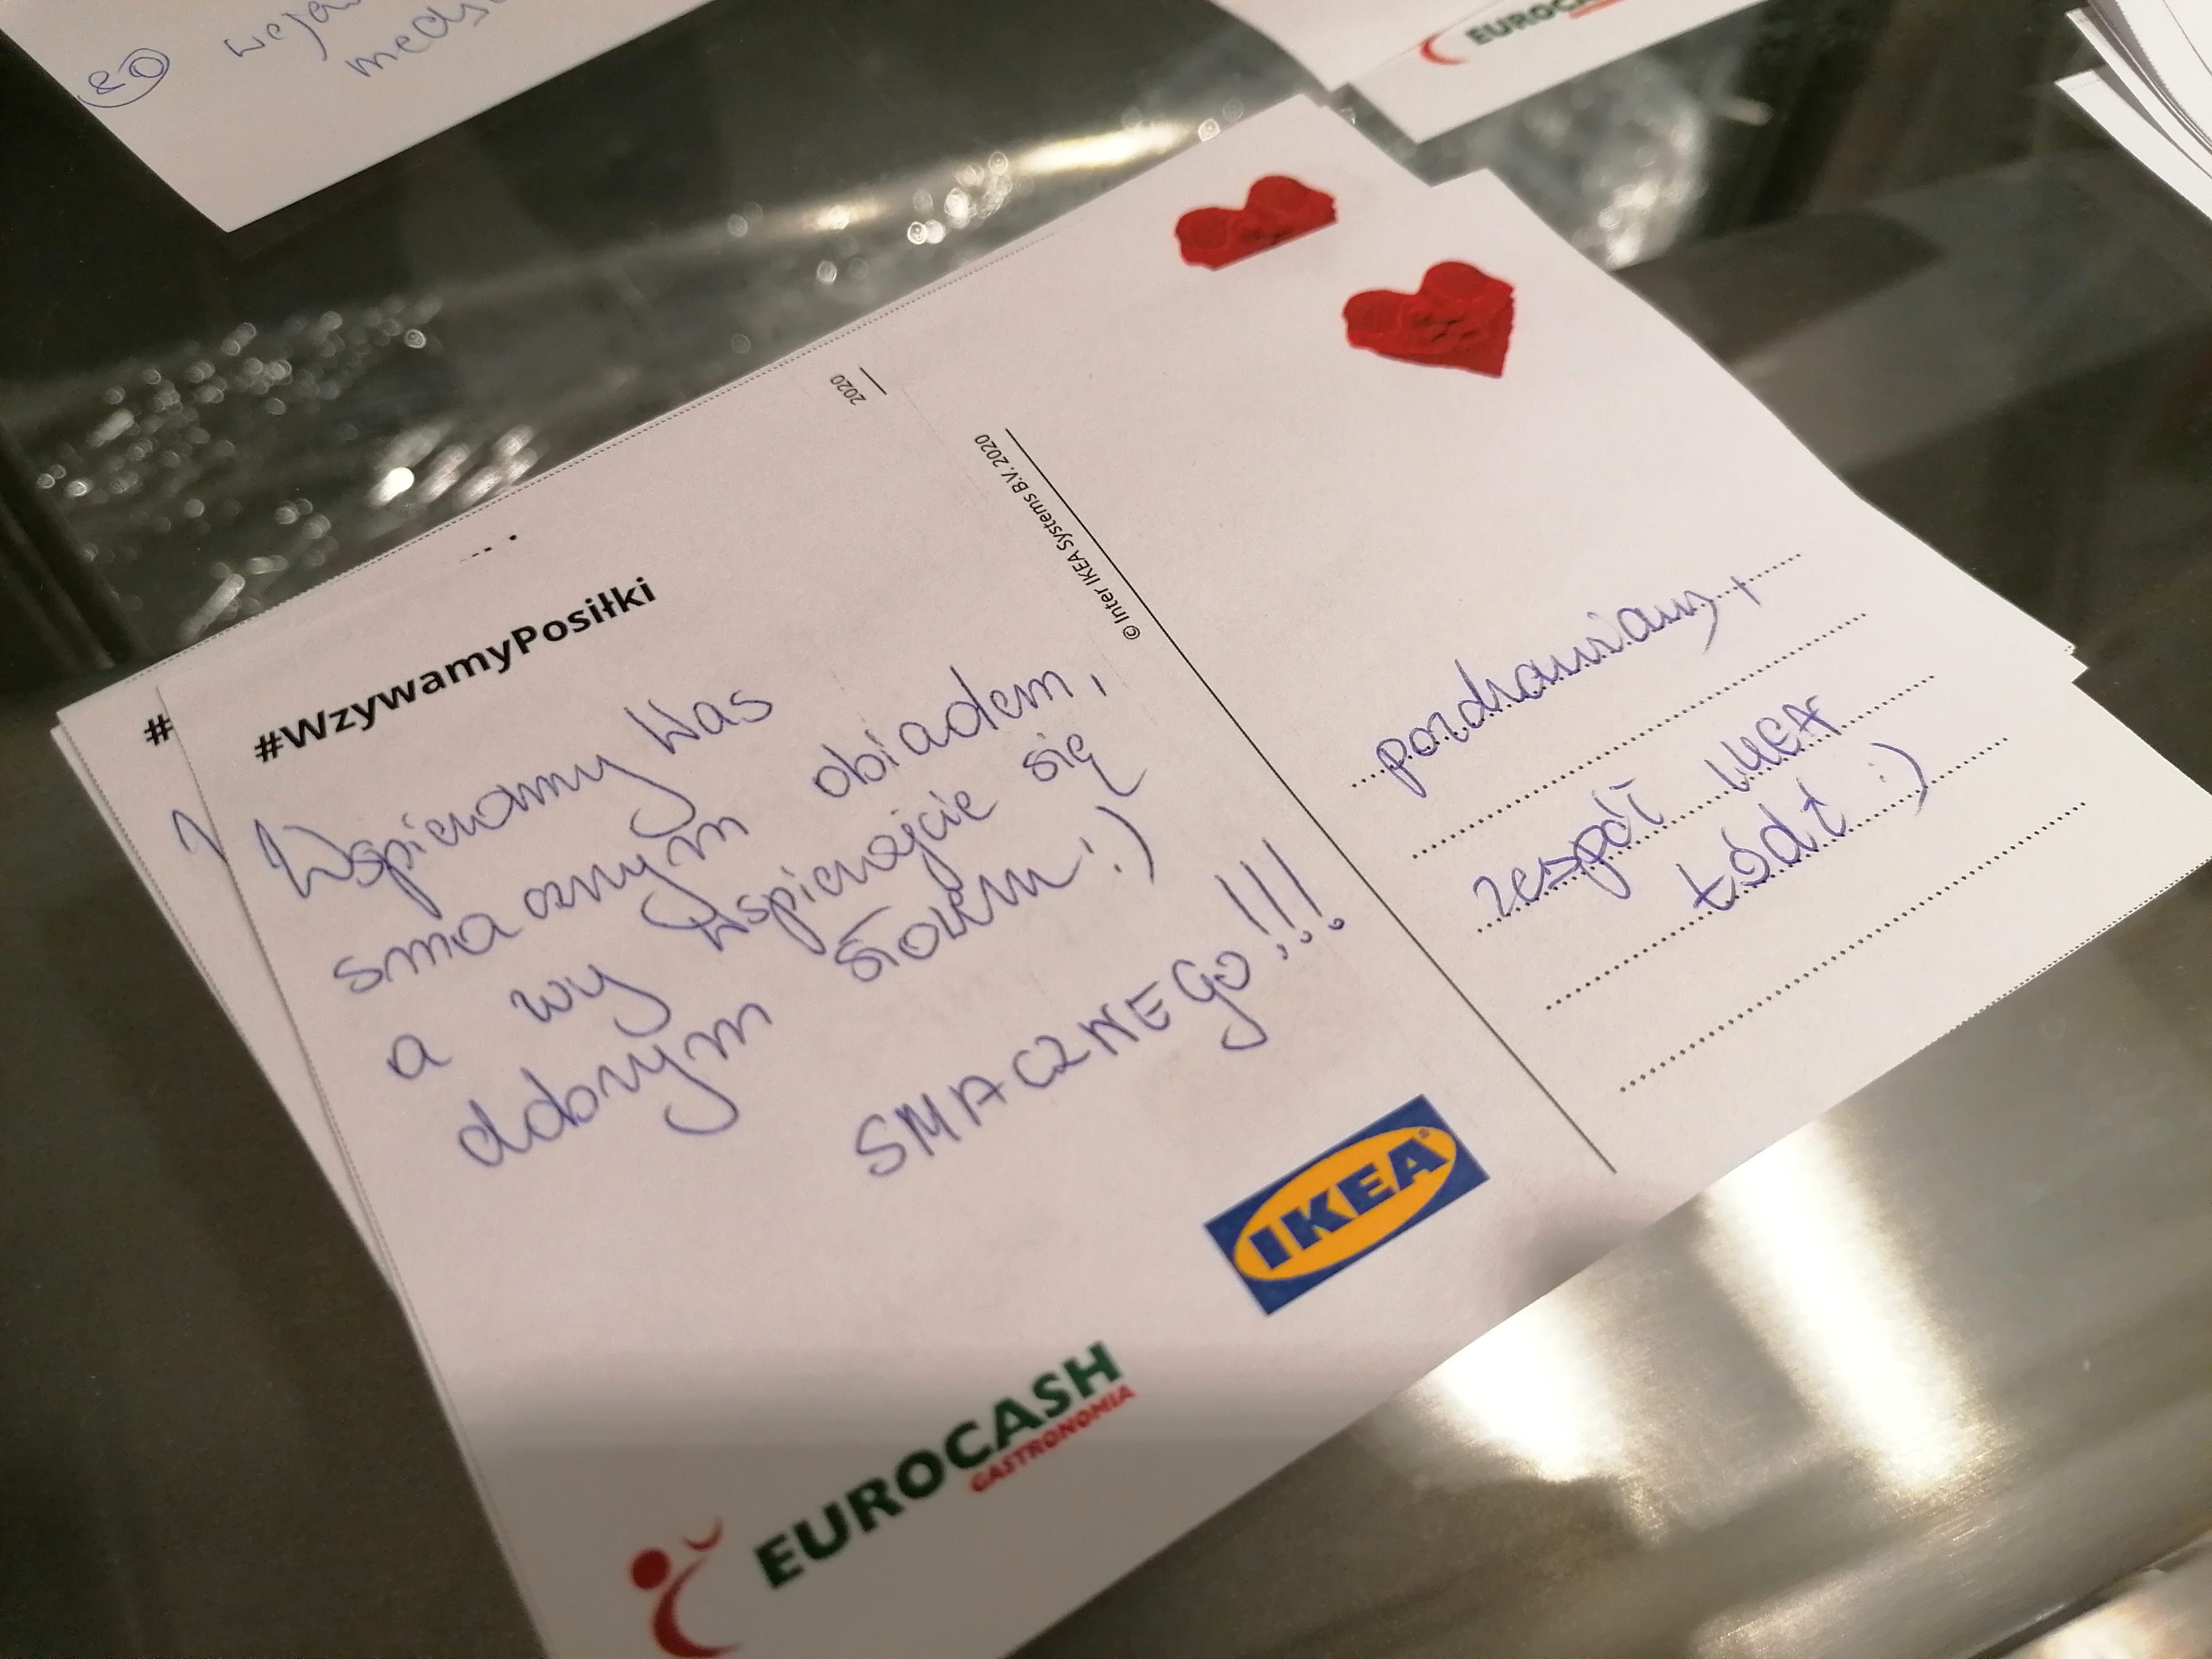 80
EUROCAS
2020
© Inter IKEA Systems B.V. 2020
#
#WzywamyPosiłki
Wspieramy Was
smacznym obiadem,
a wy wspierajcie się
dobrym słowem :)
SMACZNEGO!!!
IKEA
EUROCASH
GASTRONOMIA
pozdrawiamy,
zespół IKEA
Łódź :)